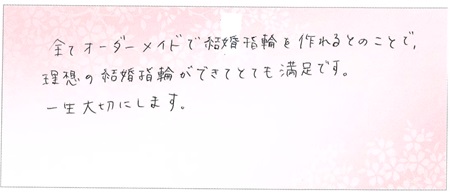 全てオーダーメイドで結婚指輪を作れるとのことで、
理想の結婚指輪ができてとても満足です。
一生大切にします。